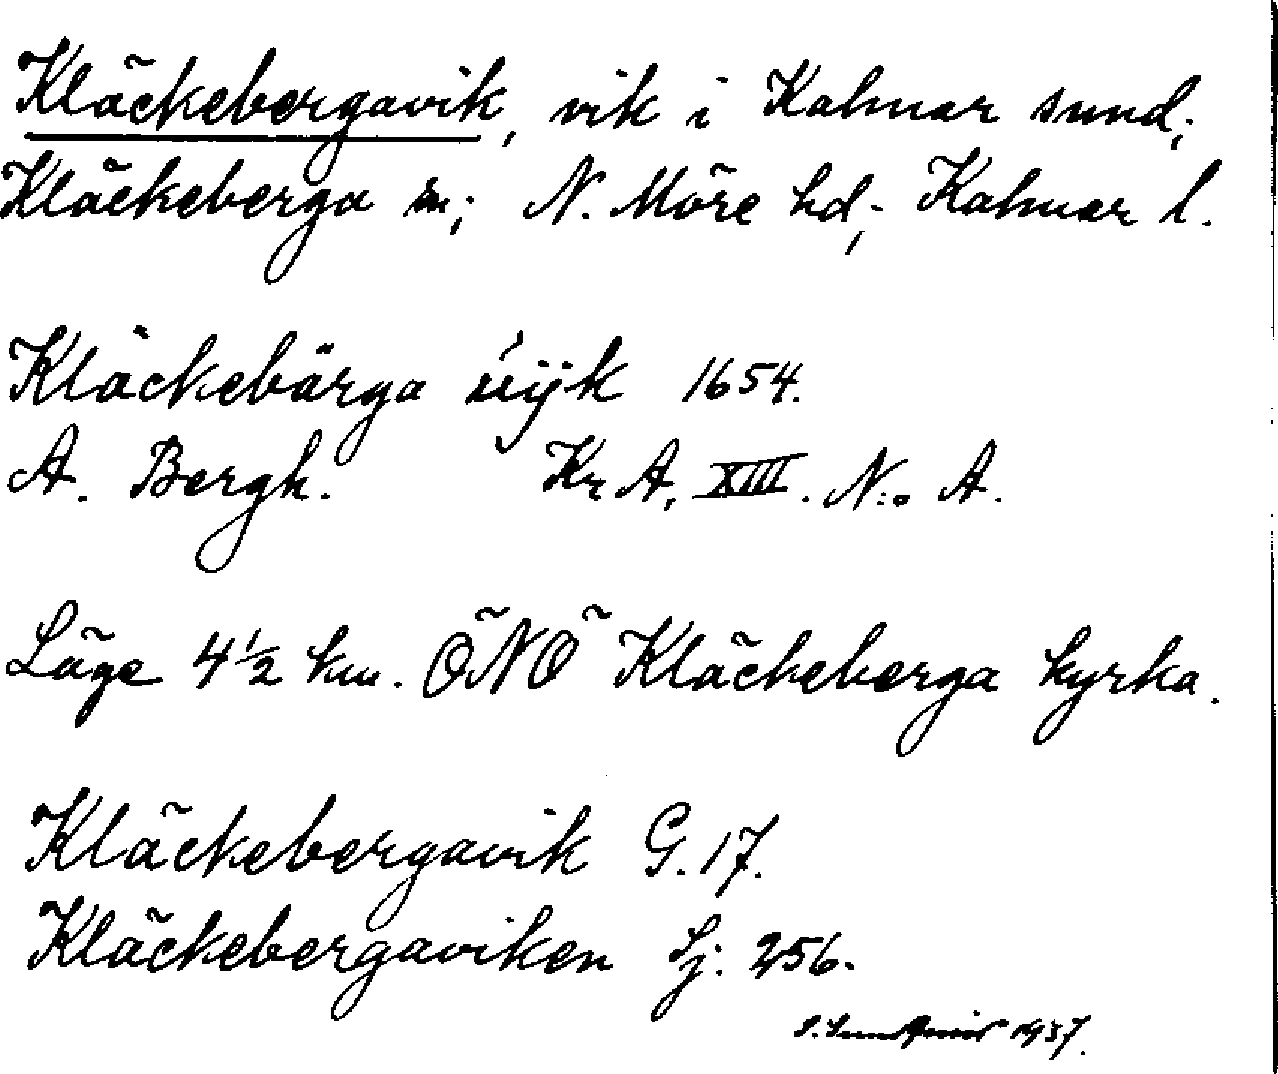 Kläckebergavik, vik i Kalmar sund;
Kläckeberga sn; N. Möre hd; Kalmar l.
Kläckebärga uijk 1654.
A. Bergh. Kr A, XIII. N:o A.
Läge 4½ km. ÖNÖ Kläckeberga kyrka.
Kläckebergavik G. 17.
Kläckebergaviken Sj. 256.
1937.